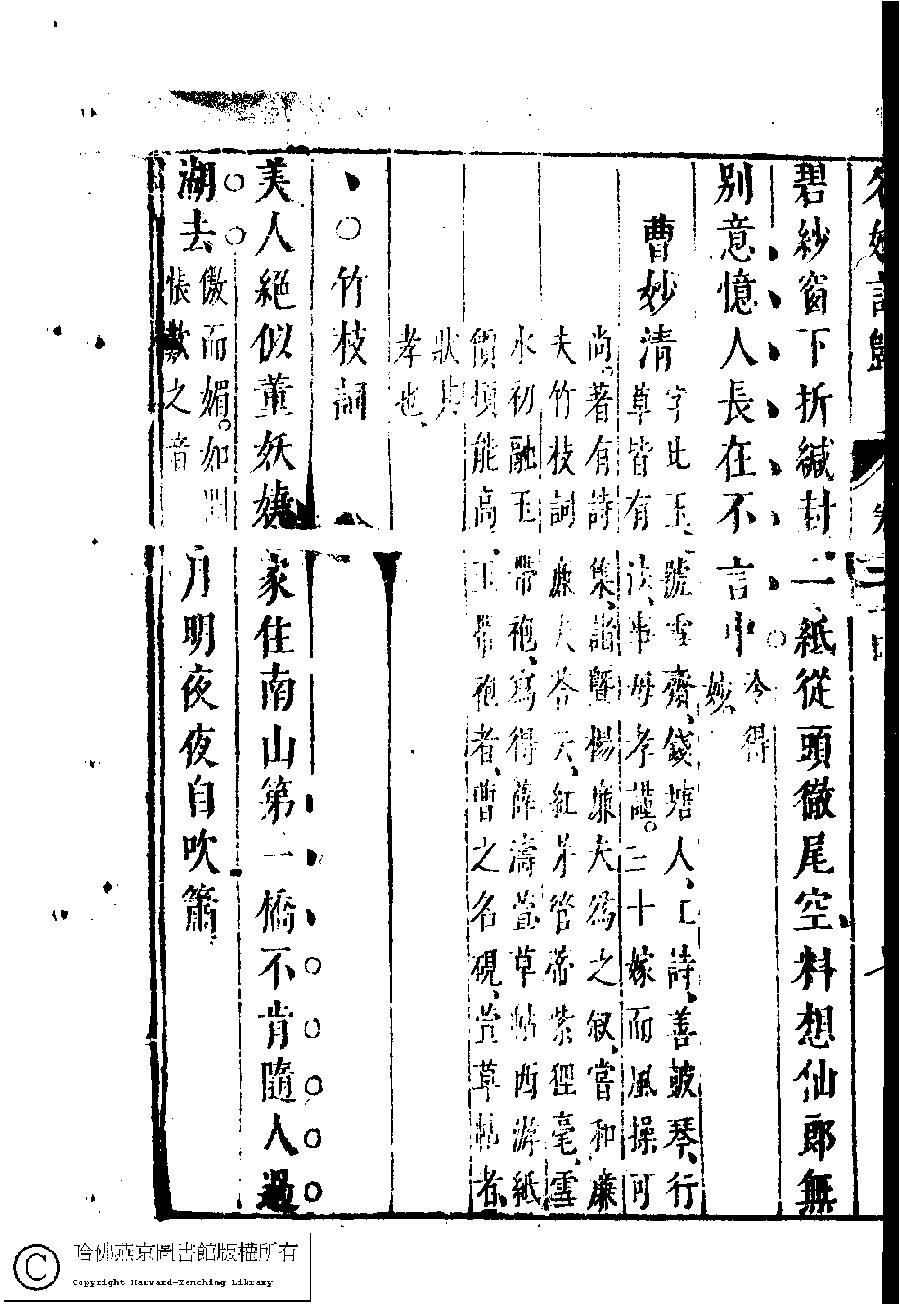 碧紗窗下折緘封二紙從頭徹尾空料想仙郎無
別意憶人長在不言中
今得
妙
曹妙清
字比玉號雪齋錢塘人工詩善皷琴行
草皆有法事母孝謹三十嫁而風操可
尚著有詩集諸暨楊廉夫為之叙嘗和廉
夫竹枝詞廉夫荅云紅牙管帶紫狸毫雪
水初融玉帶袍寫得薛濤萱草帖西湖紙
價頓能高玉帶袍者曹之名硯萱草帖者
狀其
孝也
竹枝詞
美人絕似董妖嬈家住南山第一橋不肯隨人過
湖去
傲而媚如聞
悵歎之音
月明夜夜自吹簫
哈佛燕京圖書館版權所有
Copyright Harvard-Yenching Library